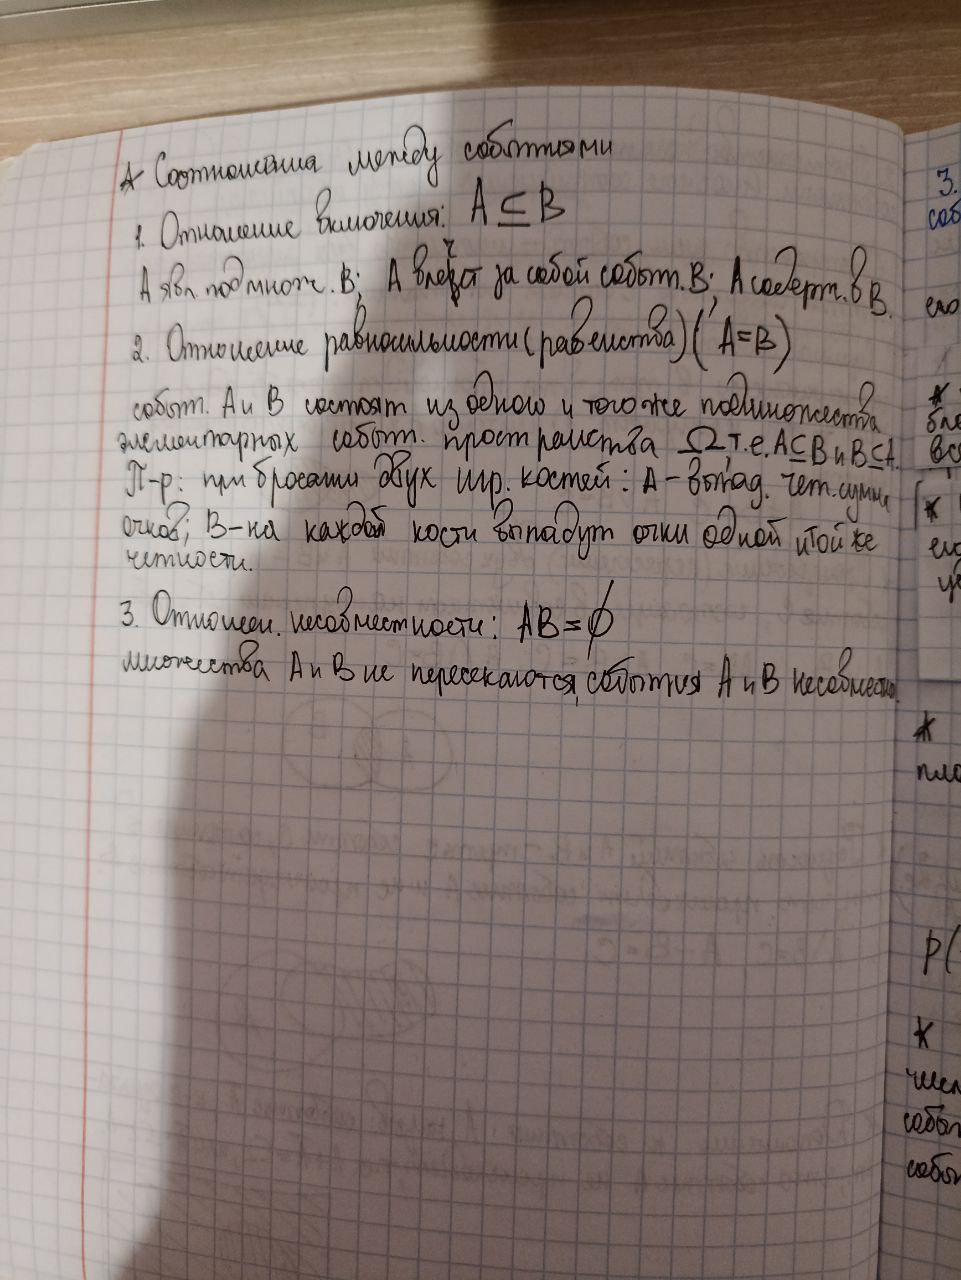 * Соотношения между событиями
1. Отношение включения: A ⊆ B
A явл. подмнож. B; A влечёт за собой событ. B; A содерж. в B.
2. Отношение равносильности (равенства) (A=B)
событ. A и B состоят из одного и того же подмножества
элементарных событ. пространства Ω, т.е. A⊆B и B⊆A.
П-р: при бросании двух игр. костей: A – выпад. чет. сумма
очков; B – на каждой кости выпадут очки одной и той же
четности.
3. Отношен. несовместности: AB = ∅
множества A и B не пересекаются, события A и B несовместн.
3.
соб
*
*
*
пло
P(
*
числ
событ
событ